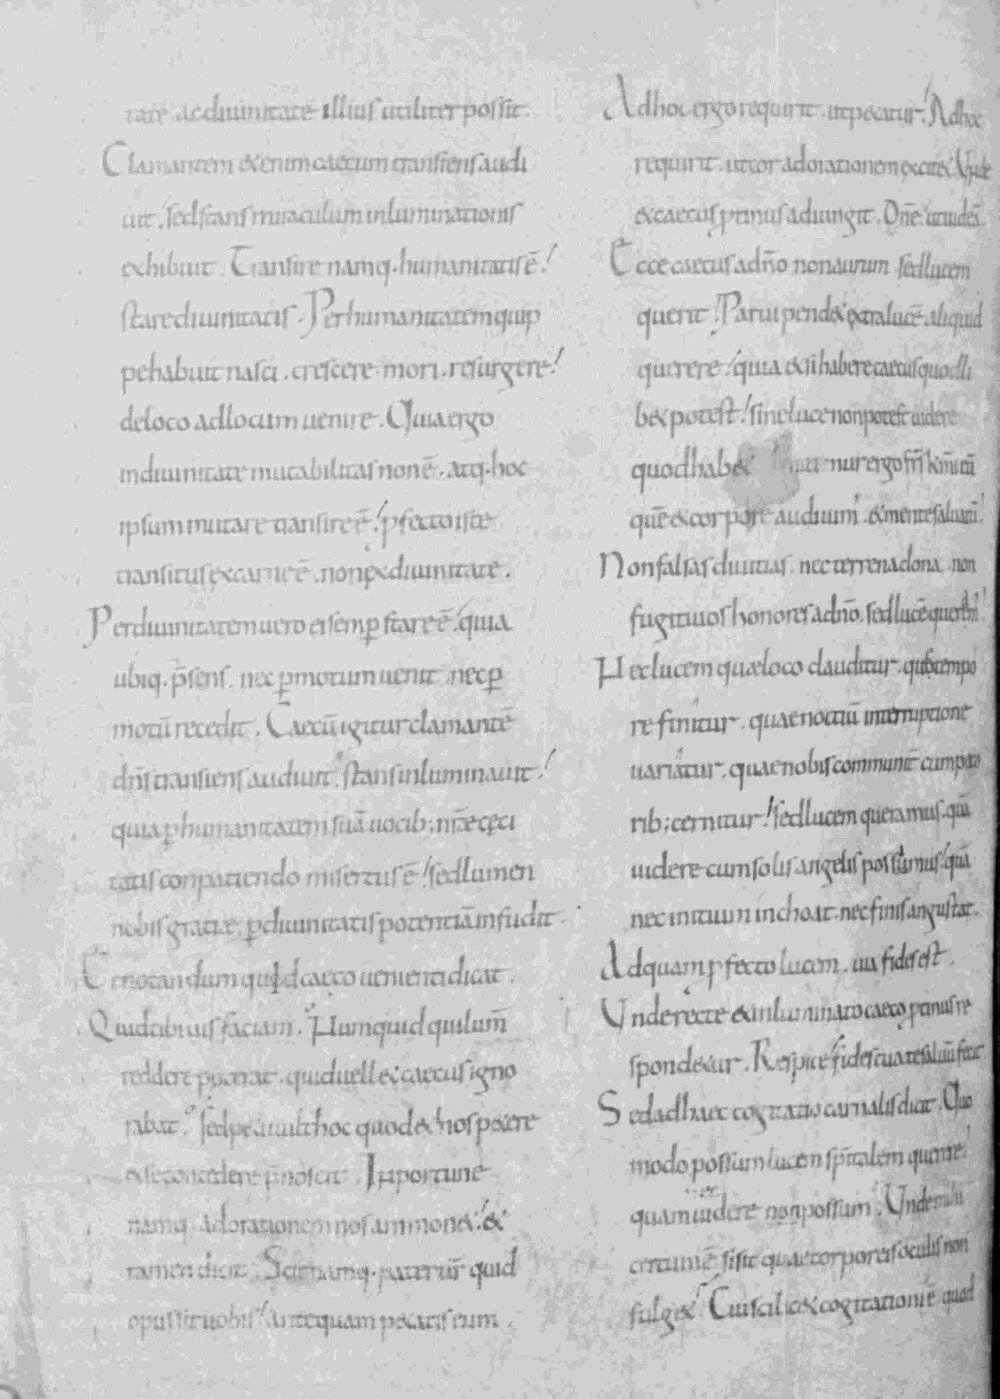 tate acdiuinitate illius utiliter possit.
Clamantem &enim caecum transiens audi
uit, sed stans miraculum inluminationis
exhibuit. Transire namq. humanitatis ē!
stare diuinitatis. Per humanitatem quip
pe habuit nasci. crescere. mori. resurgere!
deloco adlocum uenire. Quia ergo
indiuinitate mutabilitas non ē. atq. hoc
ipsum mutare transire ē! pfecto iste
transitus excarne ē. non exdiuinitate.
Per diuinitatem uero ei semp stare ē! quia
ubiq. p̄sens. nec p motum uenit. nec p
motū recedit. Caecū igitur clamantē
dn̄s transiens audiuit. stans inluminauit!
quia p humanitatem suā uocib; nr̄ae cęci
tatis conpatiendo misertus ē! sed lumen
nobis gratiae p diuinitatis potentiā infudit.
Et notandum quid caeco uenienti dicat.
Quid tibi uis faciam. Numquid qui lum̄
reddere poterat. quid uell& caecus igno
rabat. sed peti uult hoc quod & nos petere
& se concedere p̄noscit. Inportune
namq. adorationem nos ammon&! &
tamen dicit. Scit namq. pater ur̄ quid
opus sit uobis! antequam petatis eum.
Adhoc ergo requirit. ut petatur! Adhoc
requirit. ut cor adorationem excit&. Unde
& caecus ptinus adiungit. Dn̄e. ut uideā.
Ecce caecus adn̄o non aurum sed lucem
querit. Parui pend& extra lucē aliquid
querere! quia & si habere caecus quodli
b& potest! sine luce non potest uidere
quod hab& nur ergo fr̄s km̄i eū
quē & corpore audiuim'. & mente saluatū!
Non falsas diuitias. nec terrena dona. non
fugitiuos honores adn̄o. sed lucē queram'!
Nec lucem quae loco clauditur. quae tempo
re finitur. quae noctiū interruptione
uariatur. quae nobis communit̄ cum peco
rib; cernitur! sed lucem queramus. quā
uidere cum solis angelis possimus! quā
nec initium inchoat. nec finis angustat.
Ad quam pfecto lucem. uia fides est.
Unde recte & inluminato caeco ptinus re
spond&ur. Respice! fides tua te saluū fecit
Sed ad haec cogitatio carnalis dicit. Quo
modo possum lucem sp̄italem querere!
quam uidere non possum. Unde mihi
certum ē. si sit quae corporeis oculis non
fulg&. Cui scilic& cogitationi ē. quod